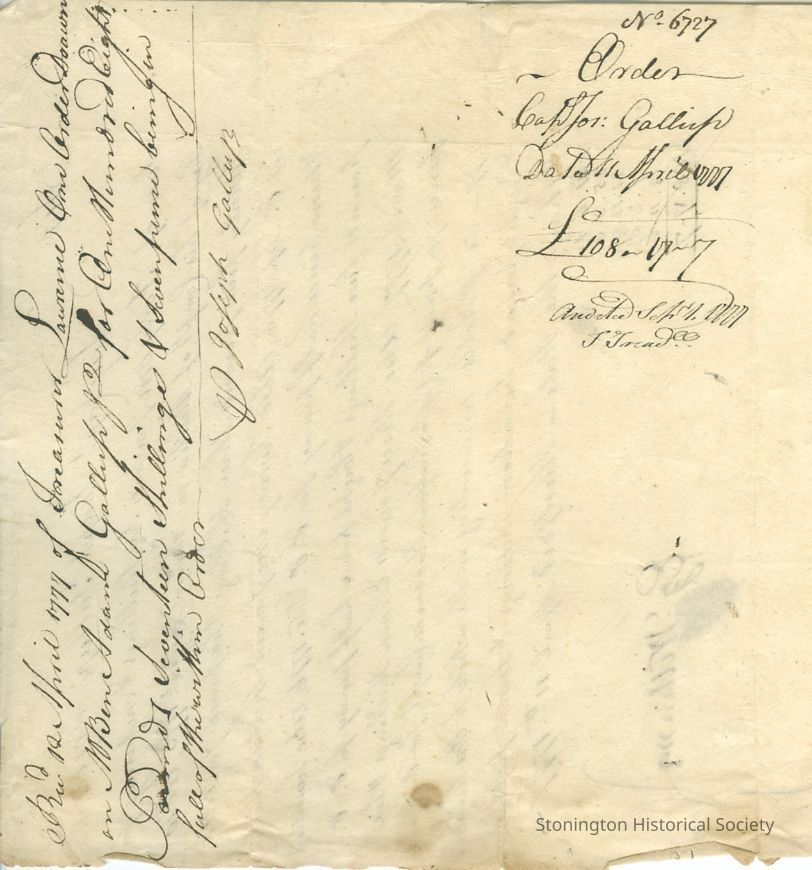 No. 6727
Order
Capt Jos: Gallup
Dated 11 April 1777
£ 108 - 17 - 7
Audited Sept 1. 1777
Recd 12 April 1777 of Treasurer Lawrence One Order Drawn
on Mr Ben Adam Gallup for One Hundred Eight
Pounds Seventeen Shillings & Seven pence being in
full of the within Order
Joseph Gallup
Stonington Historical Society